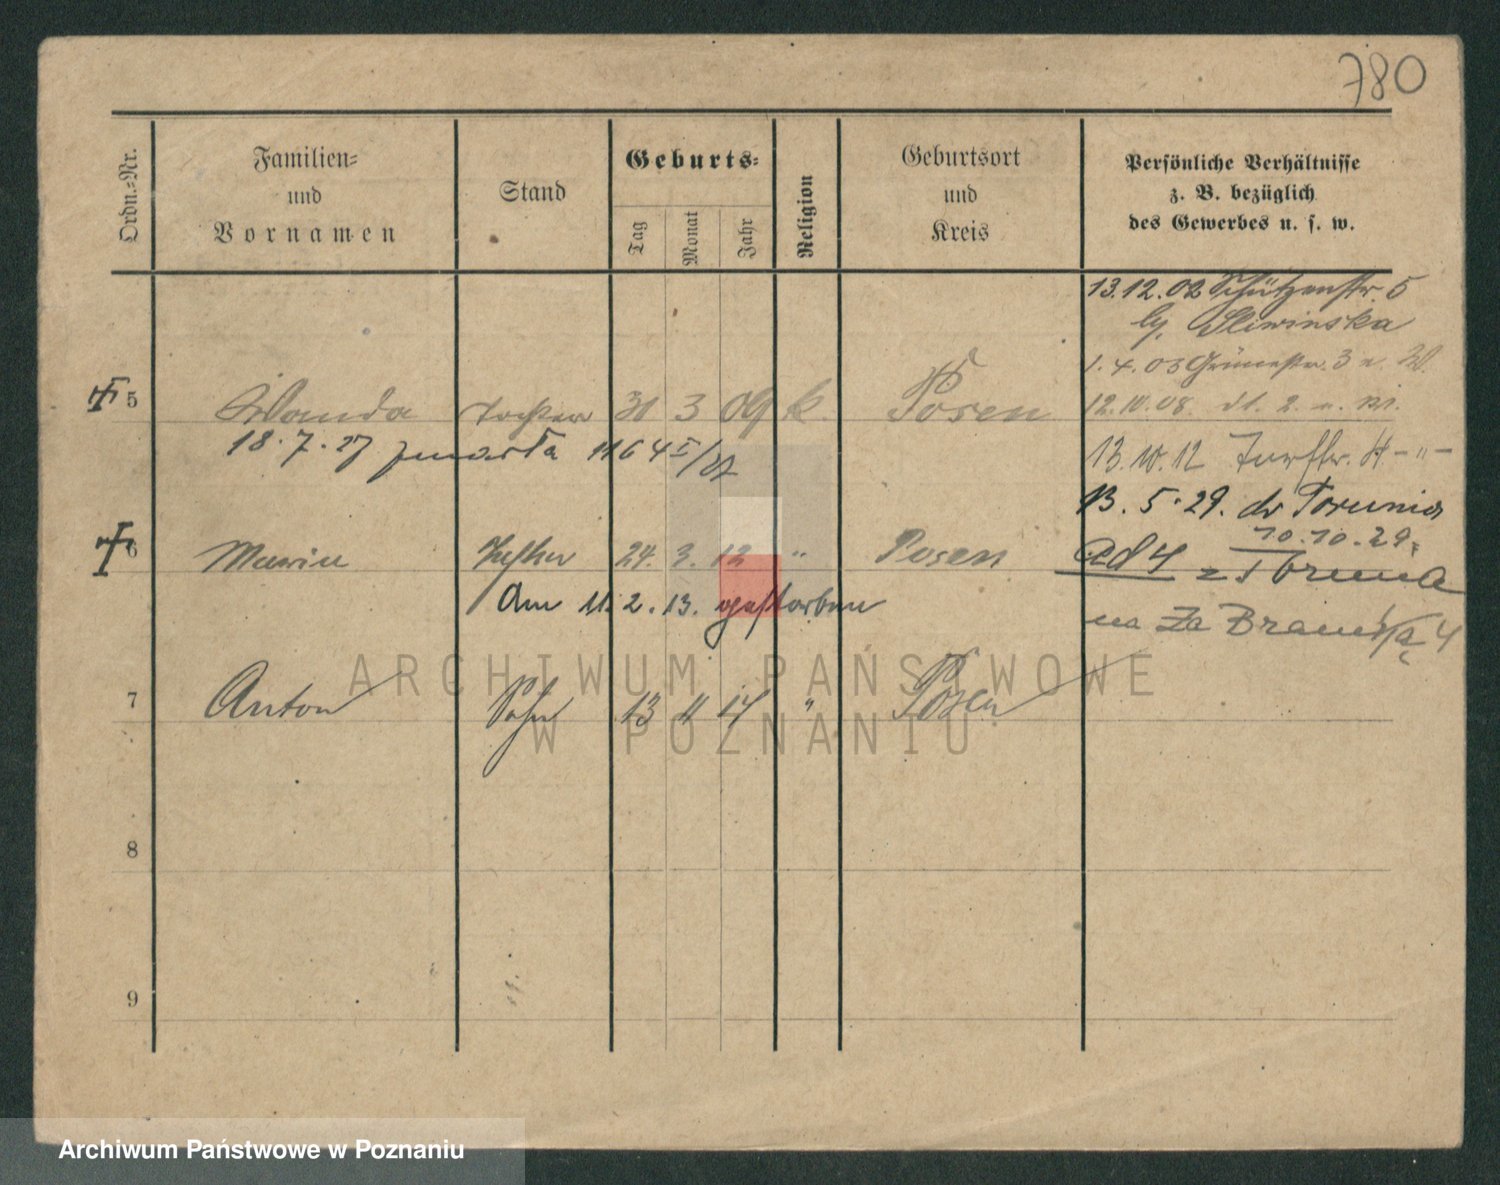 780
Ordn.-Nr.
Familien-
und
Vornamen
Stand
Geburts-
Tag
Monat
Jahr
Religion
Geburtsort
und
Kreis
Persönliche Verhältnisse
z. B. bezüglich
des Gewerbes u. s. w.
13.12.02 Schützenstr. 5
bj. Sliwinska
1. 4. 03 Grünestr. 3
5 Wanda Tochter 30 3 09 k. Posen
12.10.08.
18.7.27 zmarła 1164 I/27
13.10.12
13.5.29. do Torunia
10.10.29.
6 Maria Tochter 24. 3. 12 " Posen
ad 4 z Torunia
Am 11. 2. 13. gestorben
na Za Bramką 4
7 Anton Sohn 13 11 14 " Posen
8
9
ARCHIWUM PAŃSTWOWE
W POZNANIU
Archiwum Państwowe w Poznaniu